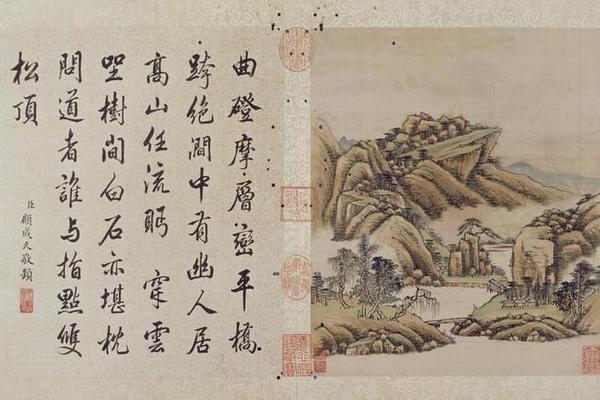 曲磴摩層巒平橋
跨絕澗中有幽人居
高山任流眄 穿雲
坐樹間白石亦堪枕
問道者誰與指點雙
松頂
臣顧成天敬題